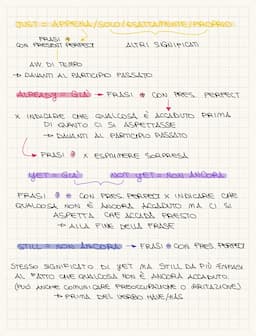 JUST = APPENA/SOLO/ESATTAMENTE/PROPRIO
FRASI
CON PRESENT PERFECT
ALTRI SIGNIFICATI
AVV DI TEMPO
→ DAVANTI AL PARTICIPIO PASSATO
ALREADY = GIÀ → FRASI CON PRES. PERFECT
X INDICARE CHE QUALCOSA È ACCADUTO PRIMA
DI QUANTO CI SI ASPETTASSE
→ DAVANTI AL PARTICIPIO PASSATO
→ FRASI X ESPRIMERE SORPRESA
YET = GIÀ NOT YET = NON ANCORA
FRASI CON PRES. PERFECT X INDICARE CHE
QUALCOSA NON È ANCORA ACCADUTO MA CI SI
ASPETTA CHE ACCADA PRESTO
→ ALLA FINE DELLA FRASE
STILL = NON ANCORA → FRASI CON PRES. PERFECT
STESSO SIGNIFICATO DI YET MA STILL DÀ PIÙ ENFASI
AL FATTO CHE QUALCOSA NON È ANCORA ACCADUTO.
(PUÒ ANCHE COMUNICARE PREOCCUPAZIONE O IRRITAZIONE)
→ PRIMA DEL VERBO HAVE/HAS